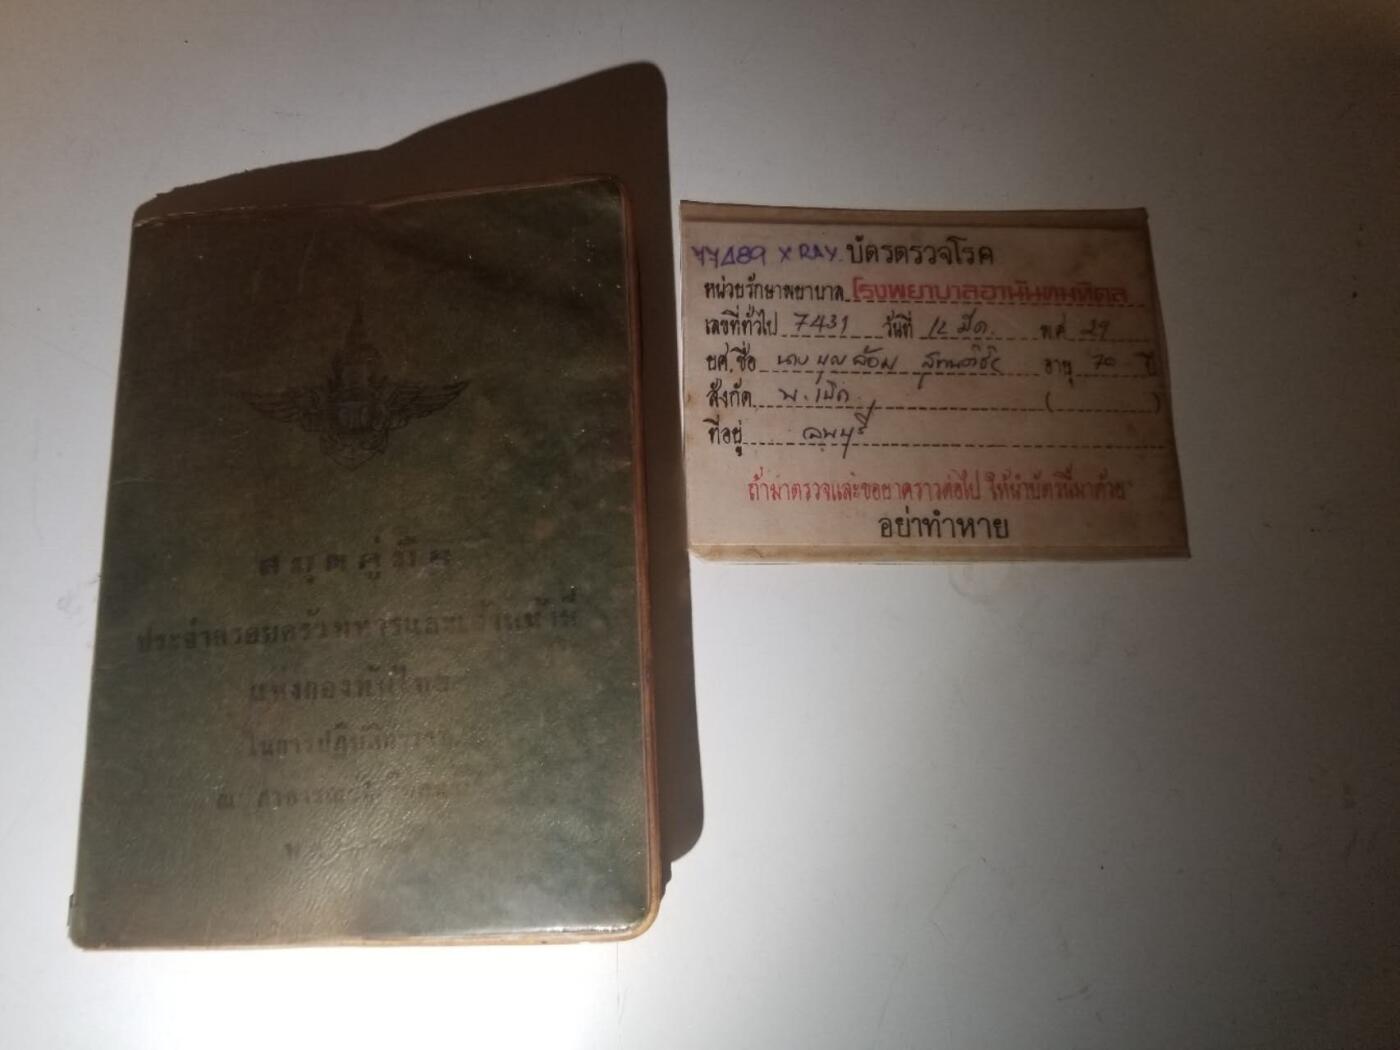 สมุดคู่มือ
ประจำครอบครัวทหารและเจ้าหน้าที่
แห่งกองทัพไทย
ในการปฏิบัติ
ณ สาธารณรัฐ
77489 X RAY. บัตรตรวจโรค
หน่วยรักษาพยาบาล โรงพยาบาลอานันทมหิดล
เลขที่ทั่วไป 7431 วันที่ 12 มีค. พ.ศ 29
ยศ, ชื่อ นาง บุญล้อม อายุ 70 ปี
สังกัด ( )
ที่อยู่ ลพบุรี
ถ้ามาตรวจและขอยาคราวต่อไป ให้นำบัตรนี้มาด้วย
อย่าทำหาย